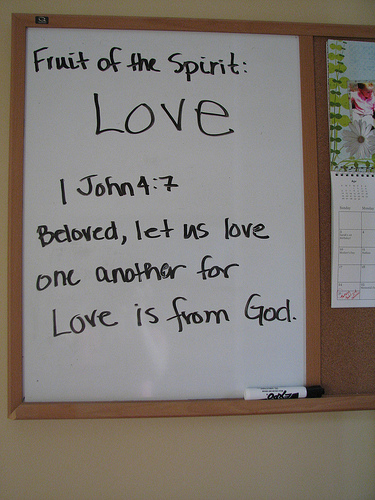 Fruit of the Spirit:
Love
1 John 4:7
Beloved, let us love
one another for
Love is from God.
EXPO